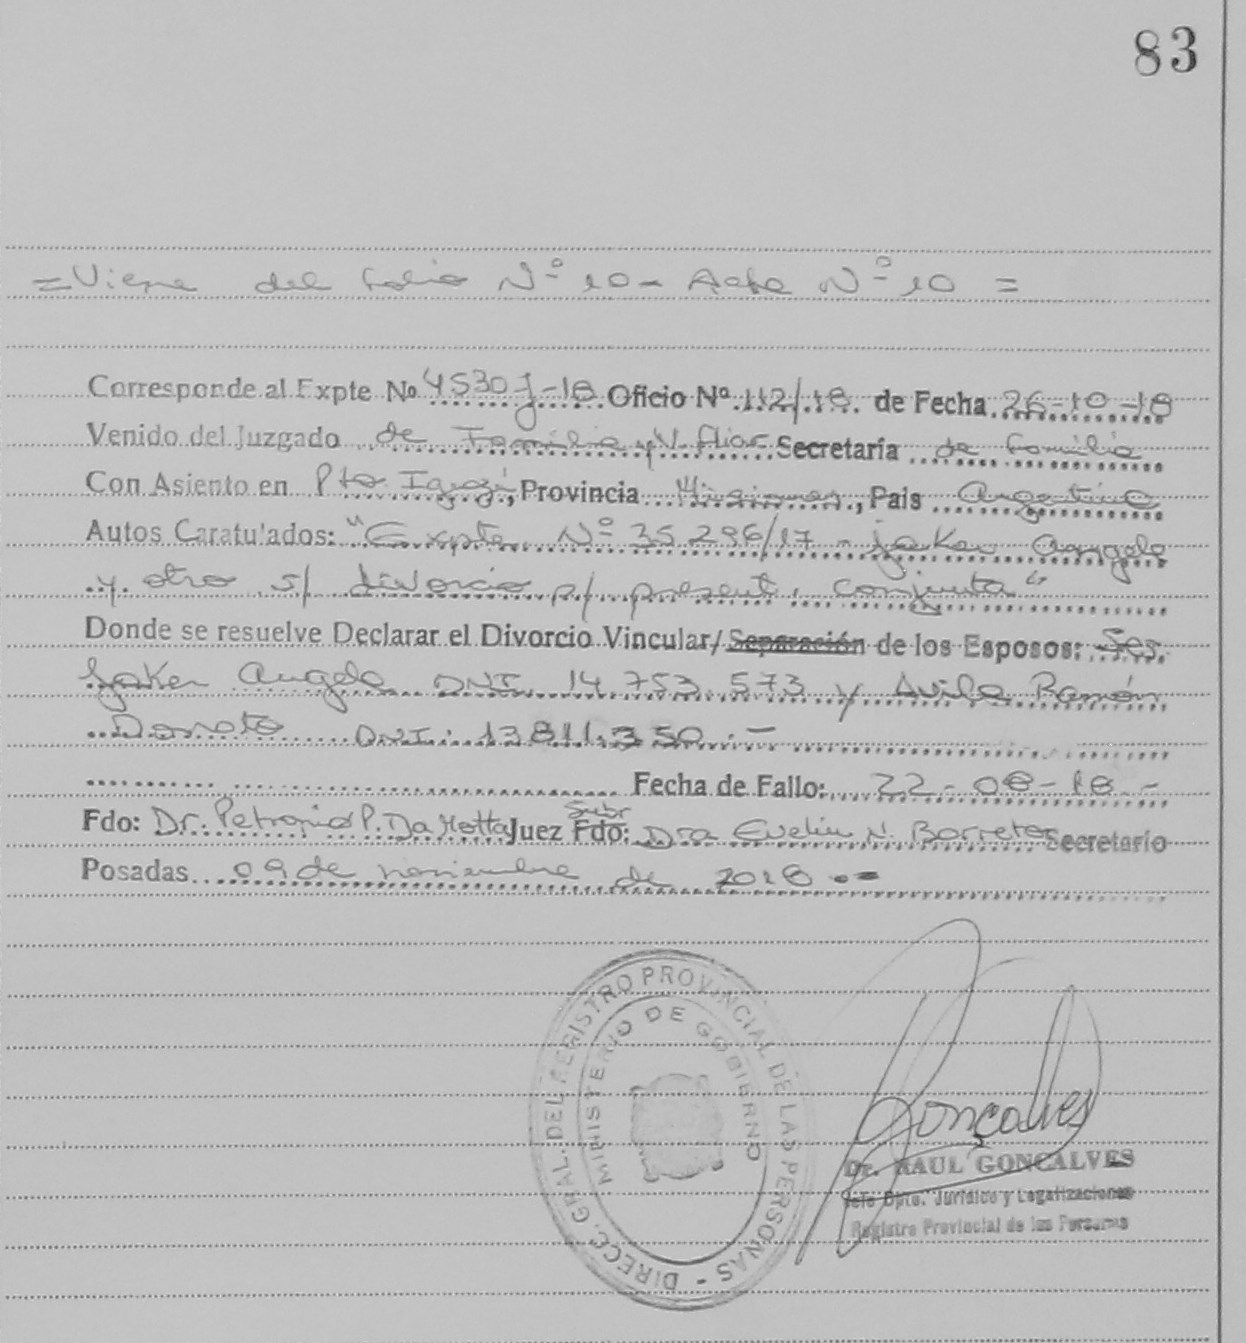 83
=Viene del folio Nº 10 - Acta Nº 10 =
Corresponde al Expte No 4530 J-18 Oficio Nº 112/18 de Fecha 26-10-18
Venido del Juzgado de Familia y V. fliar Secretaría de Familia
Con Asiento en Pto Iguazú, Provincia Misiones, Pais Argentina
Autos Caratulados: "Expte Nº 35.296/17 - Jaker Angela
y otro s/ divorcio p/ present. conjunta"
Donde se resuelve Declarar el Divorcio Vincular/Separación de los Esposos: Sres.
Jaker Angela DNI 14.753.573 y Avila Ramón
Donato DNI: 13.811.350.-
Fecha de Fallo: 22-08-18-
Fdo: Dr. Petronio P. Da Motta Juez Subr Fdo: Dra Evelin N. Barreto Secretario
Posadas 09 de noviembre de 2018.=
DIRECC. GRAL. DEL REGISTRO PROVINCIAL DE LAS PERSONAS -
MINISTERIO DE GOBIERNO
Gonçalves
Dr. RAUL GONCALVES
Jefe Dpto. Jurídico y Legalizaciones
Registro Provincial de las Personas